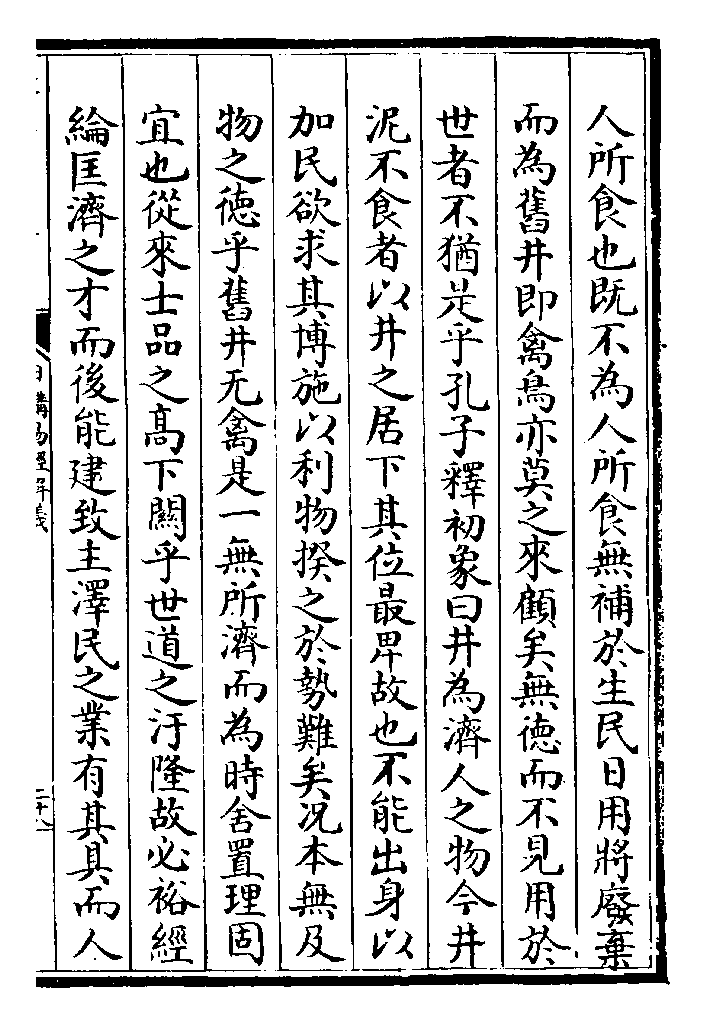 人所食也既不為人所食無補於生民日用將廢棄
而為舊井即禽鳥亦莫之來顧矣無德而不見用於
世者不猶是乎孔子釋初象曰井為濟人之物今井
泥不食者以井之居下其位最卑故也不能出身以
加民欲求其博施以利物揆之於勢難矣况本無及
物之德乎舊井无禽是一無所濟而為時舍置理固
宜也從來士品之髙下關乎世道之汙隆故必裕經
綸匡濟之才而後能建致主澤民之業有其具而人
日講易經解義
二十八